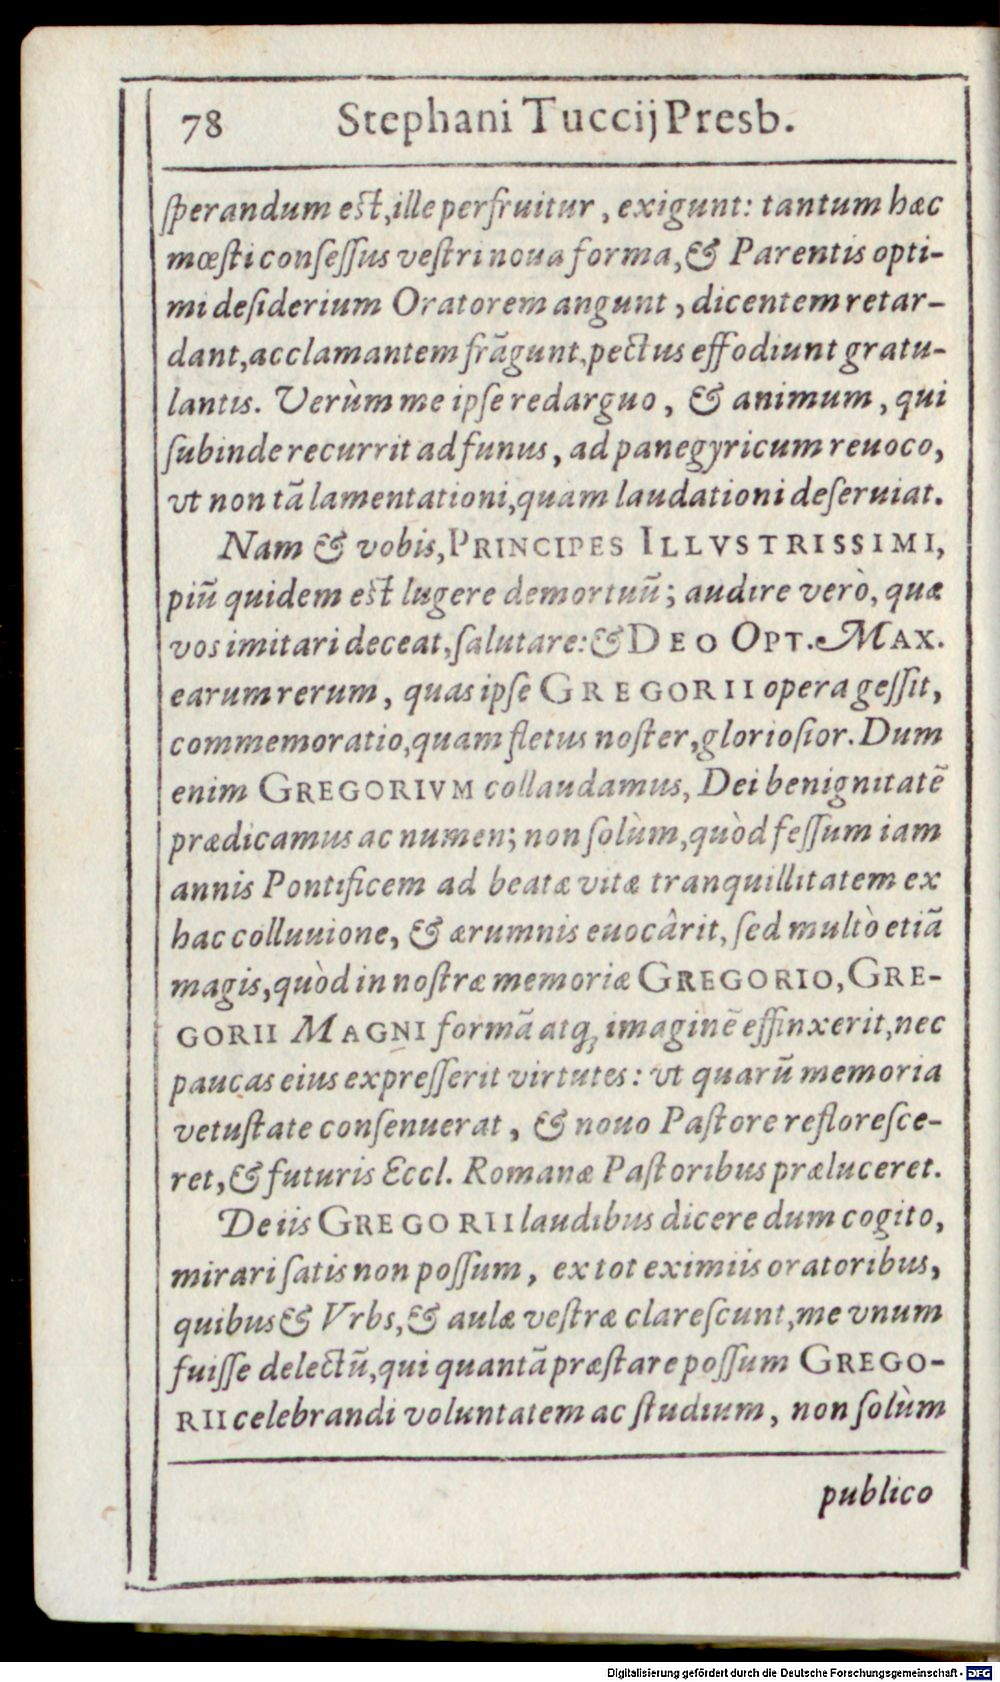 78 Stephani Tuccij Presb.
ſperandum est, ille perfruitur, exigunt: tantum hæc
mœſti conſeſſus veſtri noua forma, & Parentis opti-
mi deſiderium Oratorem angunt, dicentem retar-
dant, acclamantem frãgunt, pectus effodiunt gratu-
lantis. Verùm me ipſe redarguo, & animum, qui
ſubinde recurrit ad funus, ad panegyricum reuoco,
vt non tã lamentationi, quam laudationi deſeruiat.
Nam & vobis, PRINCIPES ILLVSTRISSIMI,
piũ quidem est lugere demortuũ; audire verò, quæ
vos imitari deceat, ſalutare: & DEO OPT. MAX.
earum rerum, quas ipſe GREGORII opera geſſit,
commemoratio, quam fletus noſter, glorioſior. Dum
enim GREGORIVM collaudamus, Dei benignitatẽ
prædicamus ac numen; non ſolùm, quòd feſſum iam
annis Pontificem ad beatæ vitæ tranquillitatem ex
hac colluuione, & ærumnis euocârit, ſed multò etiã
magis, quòd in noſtræ memoriæ GREGORIO, GRE-
GORII MAGNI formã atq; imaginẽ effinxerit, nec
paucas eius expreſſerit virtutes: vt quarũ memoria
vetuſtate conſenuerat, & nouo Paſtore refloreſce-
ret, & futuris Eccl. Romanæ Paſtoribus præluceret.
De iis GREGORII laudibus dicere dum cogito,
mirari ſatis non poſſum, ex tot eximiis oratoribus,
quibus & Vrbs, & aulæ veſtræ clareſcunt, me vnum
fuiſſe delectũ, qui quantã præſtare poſſum GREGO-
RII celebrandi voluntatem ac ſtudium, non ſolùm
publico
Digitalisierung gefördert durch die Deutsche Forschungsgemeinschaft - DFG